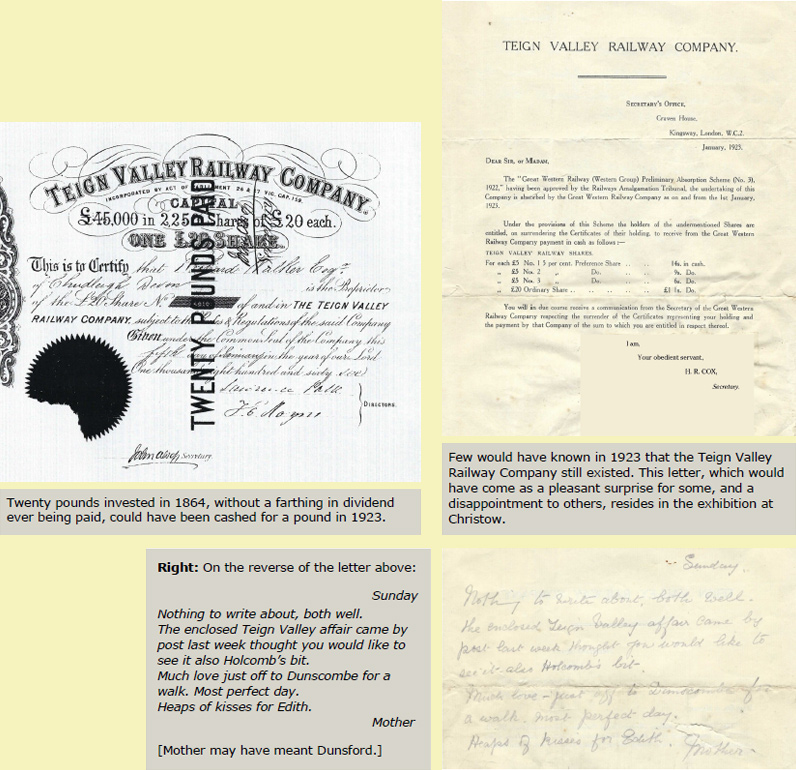 TEIGN VALLEY RAILWAY COMPANY.
INCORPORATED BY ACT OF PARLIAMENT 26 & 27 VIC. CAP. 159.
CAPITAL
£45,000 in 2,250 Shares of £20 each.
ONE £20 SHARE.
This is to Certify that Richard Walker Esqre.
of Chudleigh Devon is the Proprietor
of the £20 Share No. of and in THE TEIGN VALLEY
RAILWAY COMPANY, subject to the Rules & Regulations of the said Company
Given under the Common Seal of the Company this
fifth day of January in the year of our Lord
One thousand eight hundred and sixty
Lawrence Palk
DIRECTORS.
Secretary.
TWENTY POUNDS PAID
TEIGN VALLEY RAILWAY COMPANY.
SECRETARY'S OFFICE,
Craven House,
Kingsway, London, W.C.2.
January, 1923.
DEAR SIR, or MADAM,
The "Great Western Railway (Western Group) Preliminary Absorption Scheme (No. 3),
1922," having been approved by the Railways Amalgamation Tribunal, the undertaking of this
Company is absorbed by the Great Western Railway Company as on and from the 1st January,
1923.
Under the provisions of this Scheme the holders of the undermentioned Shares are
entitled, on surrendering the Certificates of their holding, to receive from the Great Western
Railway Company payment in cash as follows:—
TEIGN VALLEY RAILWAY SHARES.
For each £5 No. 1 5 per cent. Preference Share .. .. 14s. in cash.
„ £5 No. 2 „ Do. .. .. 9s. Do.
„ £5 No. 3 „ Do. .. .. 6s. Do.
„ £20 Ordinary Share .. .. .. .. .. £1 1s. Do.
You will in due course receive a communication from the Secretary of the Great Western
Railway Company respecting the surrender of the Certificates representing your holding and
the payment by that Company of the sum to which you are entitled in respect thereof.
I am,
Your obedient servant,
H. R. COX,
Secretary.
Twenty pounds invested in 1864, without a farthing in dividend
ever being paid, could have been cashed for a pound in 1923.
Few would have known in 1923 that the Teign Valley
Railway Company still existed. This letter, which would
have come as a pleasant surprise for some, and a
disappointment to others, resides in the exhibition at
Christow.
Right: On the reverse of the letter above:
Sunday
Nothing to write about, both well.
The enclosed Teign Valley affair came by
post last week thought you would like to
see it also Holcomb's bit.
Much love just off to Dunscombe for a
walk. Most perfect day.
Heaps of kisses for Edith.
Mother
[Mother may have meant Dunsford.]
Sunday.
Nothing to write about, both well.
The enclosed Teign Valley affair came by
post last week thought you would like to
see it also Holcomb's bit.
Much love – just off to Dunscombe for
a walk. most perfect day.
Heaps of kisses for Edith.
Mother.